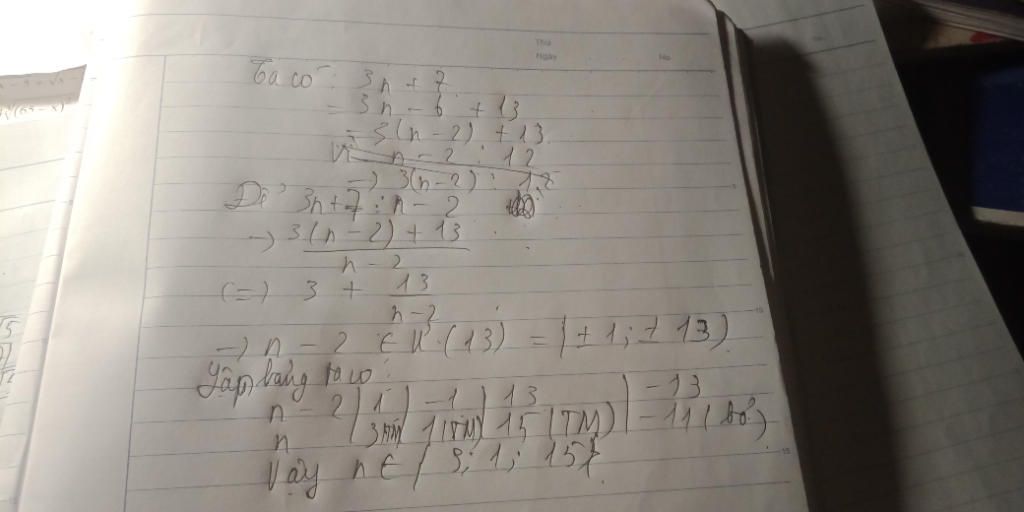 Thứ
Ngày No.
Ta có: 3n + 7
= 3n - 6 + 13
= 3(n-2) + 13
Vì n-2 ⋮ 12
→ 3(n-2) ⋮ 12
Để 3n+7 ⋮ n-2
→ 3(n-2) + 13
n-2
(=) 3 + 13
n-2
→ n - 2 ∈ Ư(13) = {±1; ±13}
Lập bảng ta có:
n - 2 | 1 | -1 | 13 | -13
n | 3(TM) | 1(TM) | 15 (TM) | -11 (bỏ)
Vậy n ∈ {3; 1; 15}